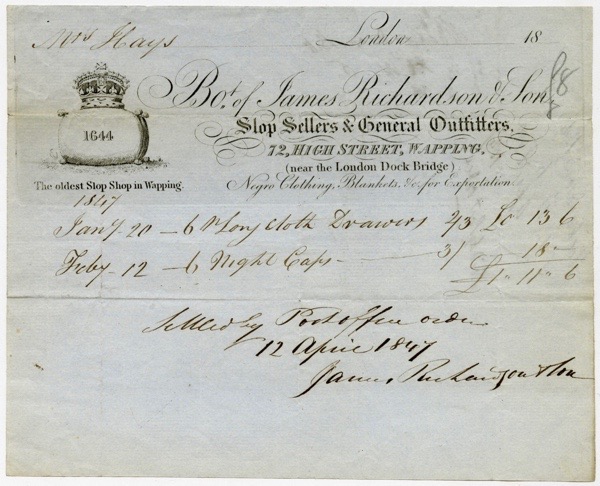 Mrs Hays London 18
Bot. of James Richardson & Son,
1644
Slop Sellers & General Outfitters,
72, HIGH STREET, WAPPING,
(near the London Dock Bridge)
The oldest Slop Shop in Wapping.
Negro Clothing, Blankets, &c. for Exportation
1847
Jany 20 – 6 Pr Long Cloth Drawers 2/3 £0 13 6
Feby 12 – 6 Night Caps – 3/ 18 "
£1 " 11 " 6
Settled by Post office order
12 April 1847
James Richardson & Son